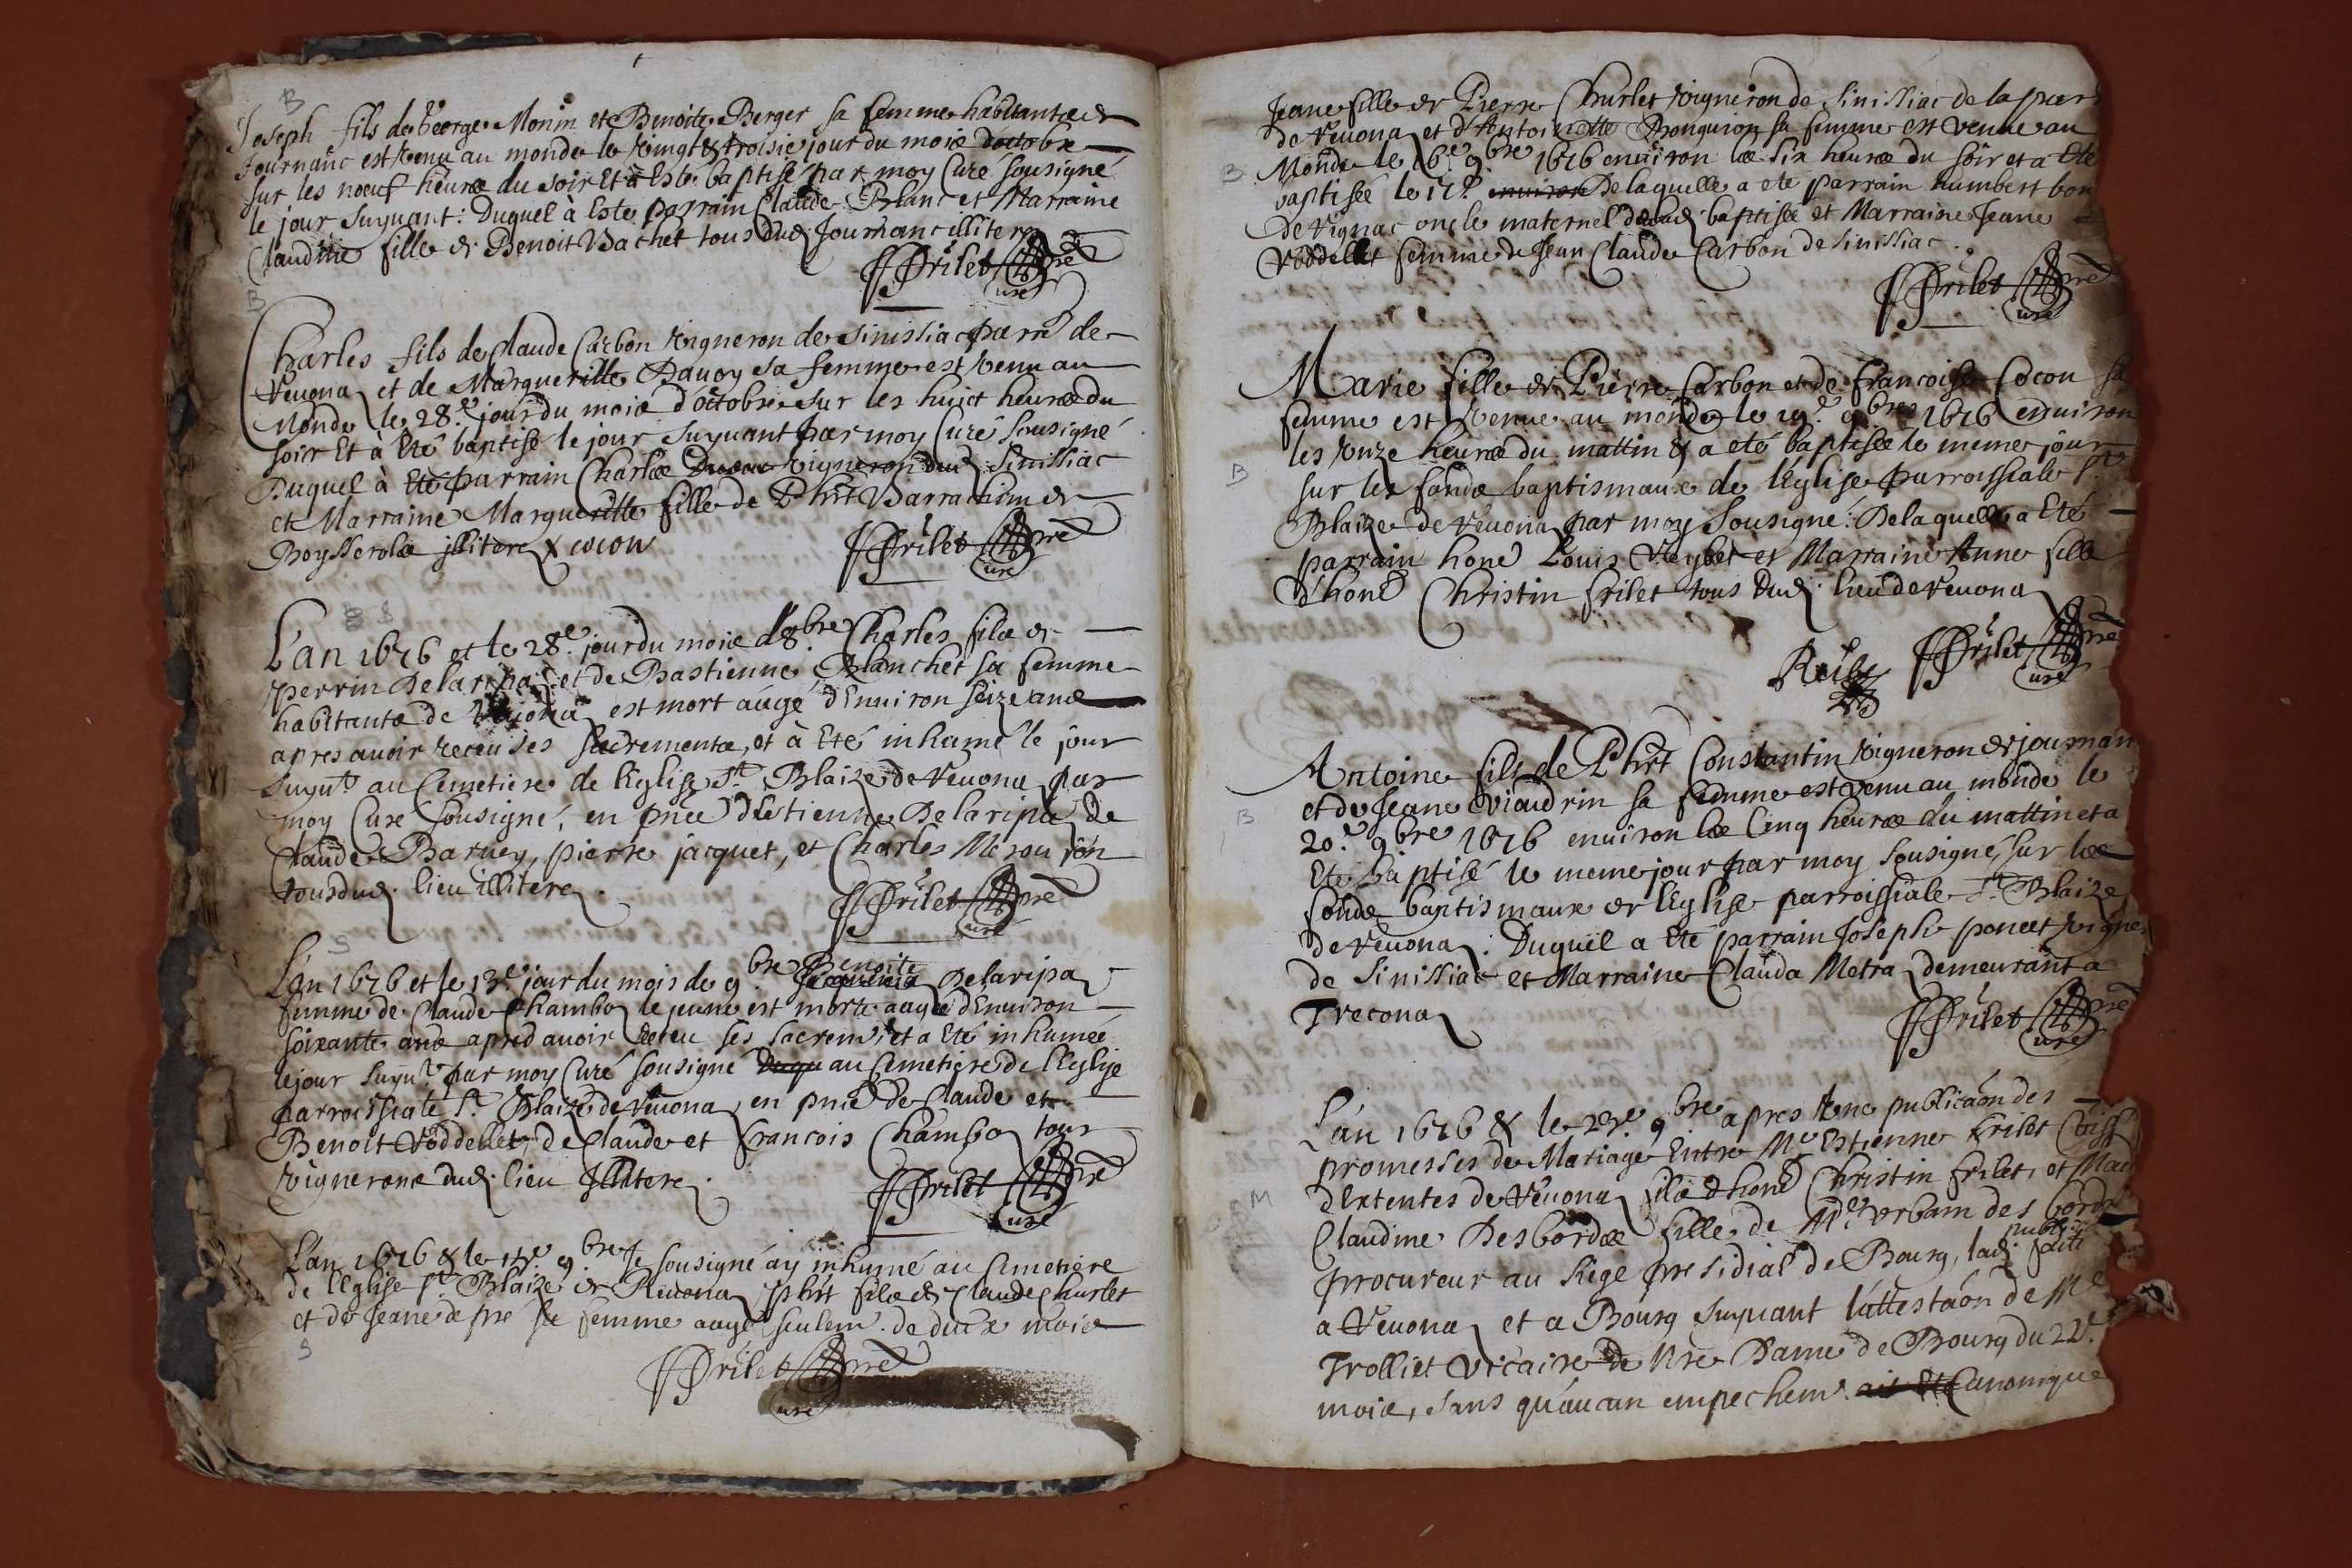 B
Joseph fils de George Monin et Benoite Berger sa femme habitants de
Journanc est venu au monde le vingt & troisie jour du mois d'octobre
sur les noeuf heures du soir Et à Esté baptisé par moy Curé sousigné
le jour suyuant: Duquel à Esté parrain Claude Blanc et Marraine
Claudine fille de Benoit Vachet tous dud. Journanc illiterez
FFrilet pre
Curé
B
Charles fils de Claude Carbon vigneron de Sinissiac parre de
Reuona et de Margueritte Dauoy sa femme est venu au
Monde le 28e jour du mois d'octobre sur les huict heures du
soir Et à Eté baptisé le jour suyuant par moy Curé sousigné
Duquel à Eté parrain Charles vigneron dud. Sinissiac
et Marraine Margueritte fille de Phrt Barrachin de
Boysserolas jlliterez & cocon
FFrilet pre
Curé
S
L'an 1676 et le 28e jour du mois d'8bre Charles fils de
perrin Delaripaz et de Bastienne Blanchet sa femme
habitants de Reuona est mort aagé d'Enuiron seize ans
apres auoir receu ses sacrements, et à Eté inhumé le jour
suyut au Cemetiere de l'Eglise St Blaize de Reuona par
moy Curé sousigné, en pnce d'Estienne Delaripaz de
Claude Baruey, pierre jacquet, et Charles
tous dud. lieu illiterez.
FFrilet pre
Curé
S
L'an 1676 et le 13e jour du mois de 9bre Benoite Delaripaz
femme de Claude Chamboz le jeune est morte aagée d'Enuiron
soixante ans apres auoir receu ses sacremt et a Eté inhumée
le jour suyut par moy Curé sousigné Duqu au Cemetiere de l'Eglise
parroissiale St Blaize de Reuona, en pnce de Claude et
Benoit Voddellet, de Claude et francois Chamboz tous
vignerons dud. lieu Illiterez.
FFrilet pre
Curé
L'an 1676 & le 15e 9bre Je sousigné ay inhumé au Cemetiere
de l'Eglise St Blaize de Reuona Phrt fils de Claude Churlet
et de Jeane sa femme aagé seulemt de deux mois
S
FFrilet pre
Curé
Jeane fille de Pierre Churlet vigneron de Sinissiac de la parr
de Reuona et d'Antoinette Bonguion sa femme est venue au
B
Monde le 16e 9bre 1676 enuiron les six heures du soir et a Eté
baptisée le 17e enuiron Delaquelle a eté parrain humbert bon
de vignac oncle maternel delad. baptisée et Marraine Jeane
Voddellet femme de Jean Claude Carbon de sinissiac.
FFrilet pre
Curé
Marie fille de Pierre Carbon et de francoise Cocon sa
femme est venue au monde le 19e 9bre 1676 enuiron
les vnze heures du mattin & a eté baptisée le meme jour
B
sur les fonds baptismaux de l'Eglise parroissiale St
Blaize de Reuona par moy sousigné: Delaquelle a Eté
parrain hone Louis Reybet et Marraine Anne fille
d'hone Christin frilet tous dud. lieu de Reuona
FFrilet pre
Curé
Antoine fils de Phrt Constantin vigneron de journan
et de Jeane Viaudrin sa femme est venu au monde le
B
20e 9bre 1676 enuiron les Cinq heures du mattin et a
Eté baptisé le meme jour par moy sousigné, sur les
fonds baptismaux de l'Eglise parroissiale St Blaize
de Reuona: Duquel a Eté parrain Joseph poncet vigne
de Sinissiac et Marraine Clauda Metra demeurant a
Treconaz
FFrilet pre
Curé
L'an 1676 & le 23e 9bre apres vne publicaon des
promesses de Mariage Entre Mre Estienne frilet
M
d'Extentes de Reuona fils d'hone Christin frilet, et Mad
Claudine Desbordes fille de Me vrbain des bordes
procureur au siege presidial de Bourg, lad. publ. faite
a Reuona et a Bourg suyuant l'attestaon de Mre
Trolliet vicaire de Nre Dame de Bourg du 22e
mois, sans qu'aucun empechemt ait Eté Canonique